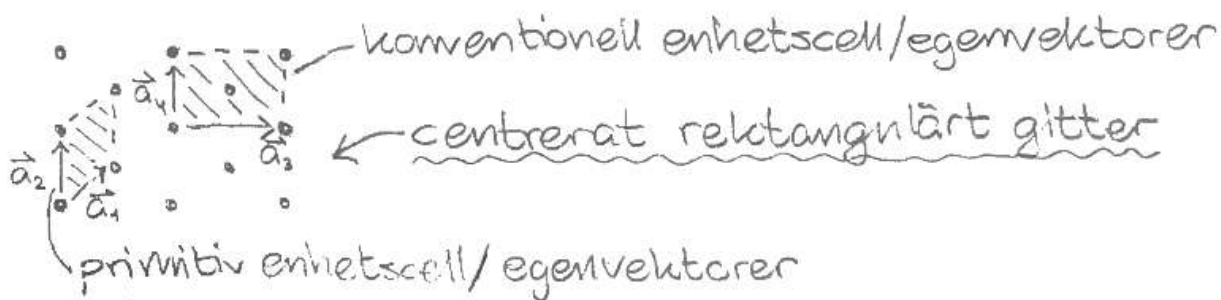 konventionell enhetscell/egenvektorer
centrerat rektangulärt gitter
a⃗₄
a⃗₃
a⃗₂
a⃗₁
primitiv enhetscell/egenvektorer